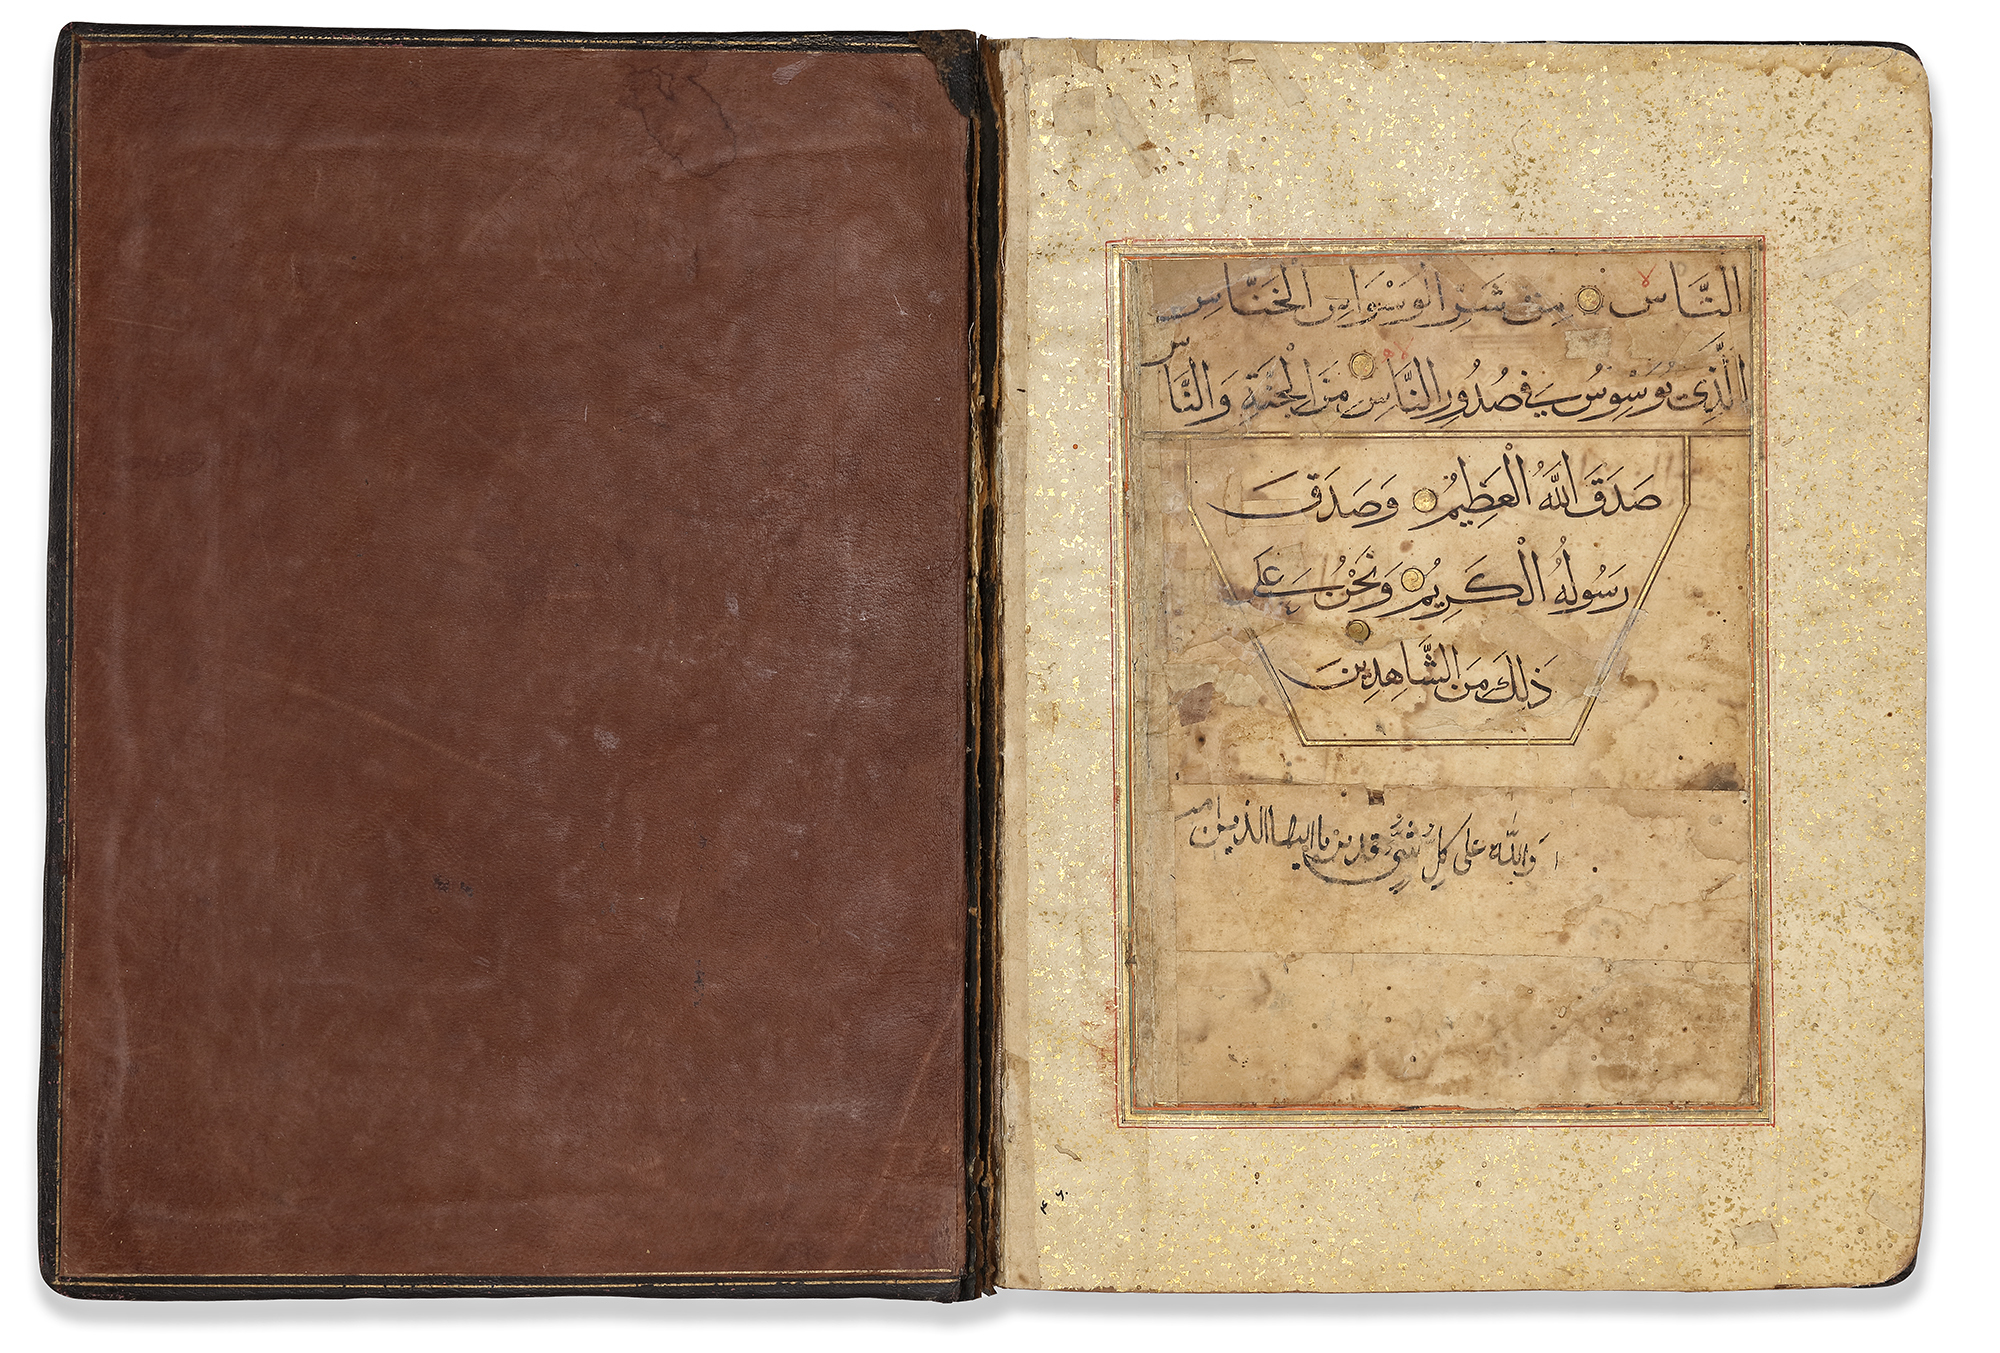 النَّاسِ مِنْ شَرِّ الْوَسْوَاسِ الْخَنَّاسِ
الَّذِي يُوَسْوِسُ فِي صُدُورِ النَّاسِ مِنَ الْجِنَّةِ وَالنَّاسِ
صَدَقَ اللَّهُ الْعَظِيمُ وَصَدَقَ
رَسُولُهُ الْكَرِيمُ وَنَحْنُ عَلَى
ذَلِكَ مِنَ الشَّاهِدِينَ
وَاللَّهُ عَلَى كُلِّ شَيْءٍ قَدِيرٌ يا ايها الذين